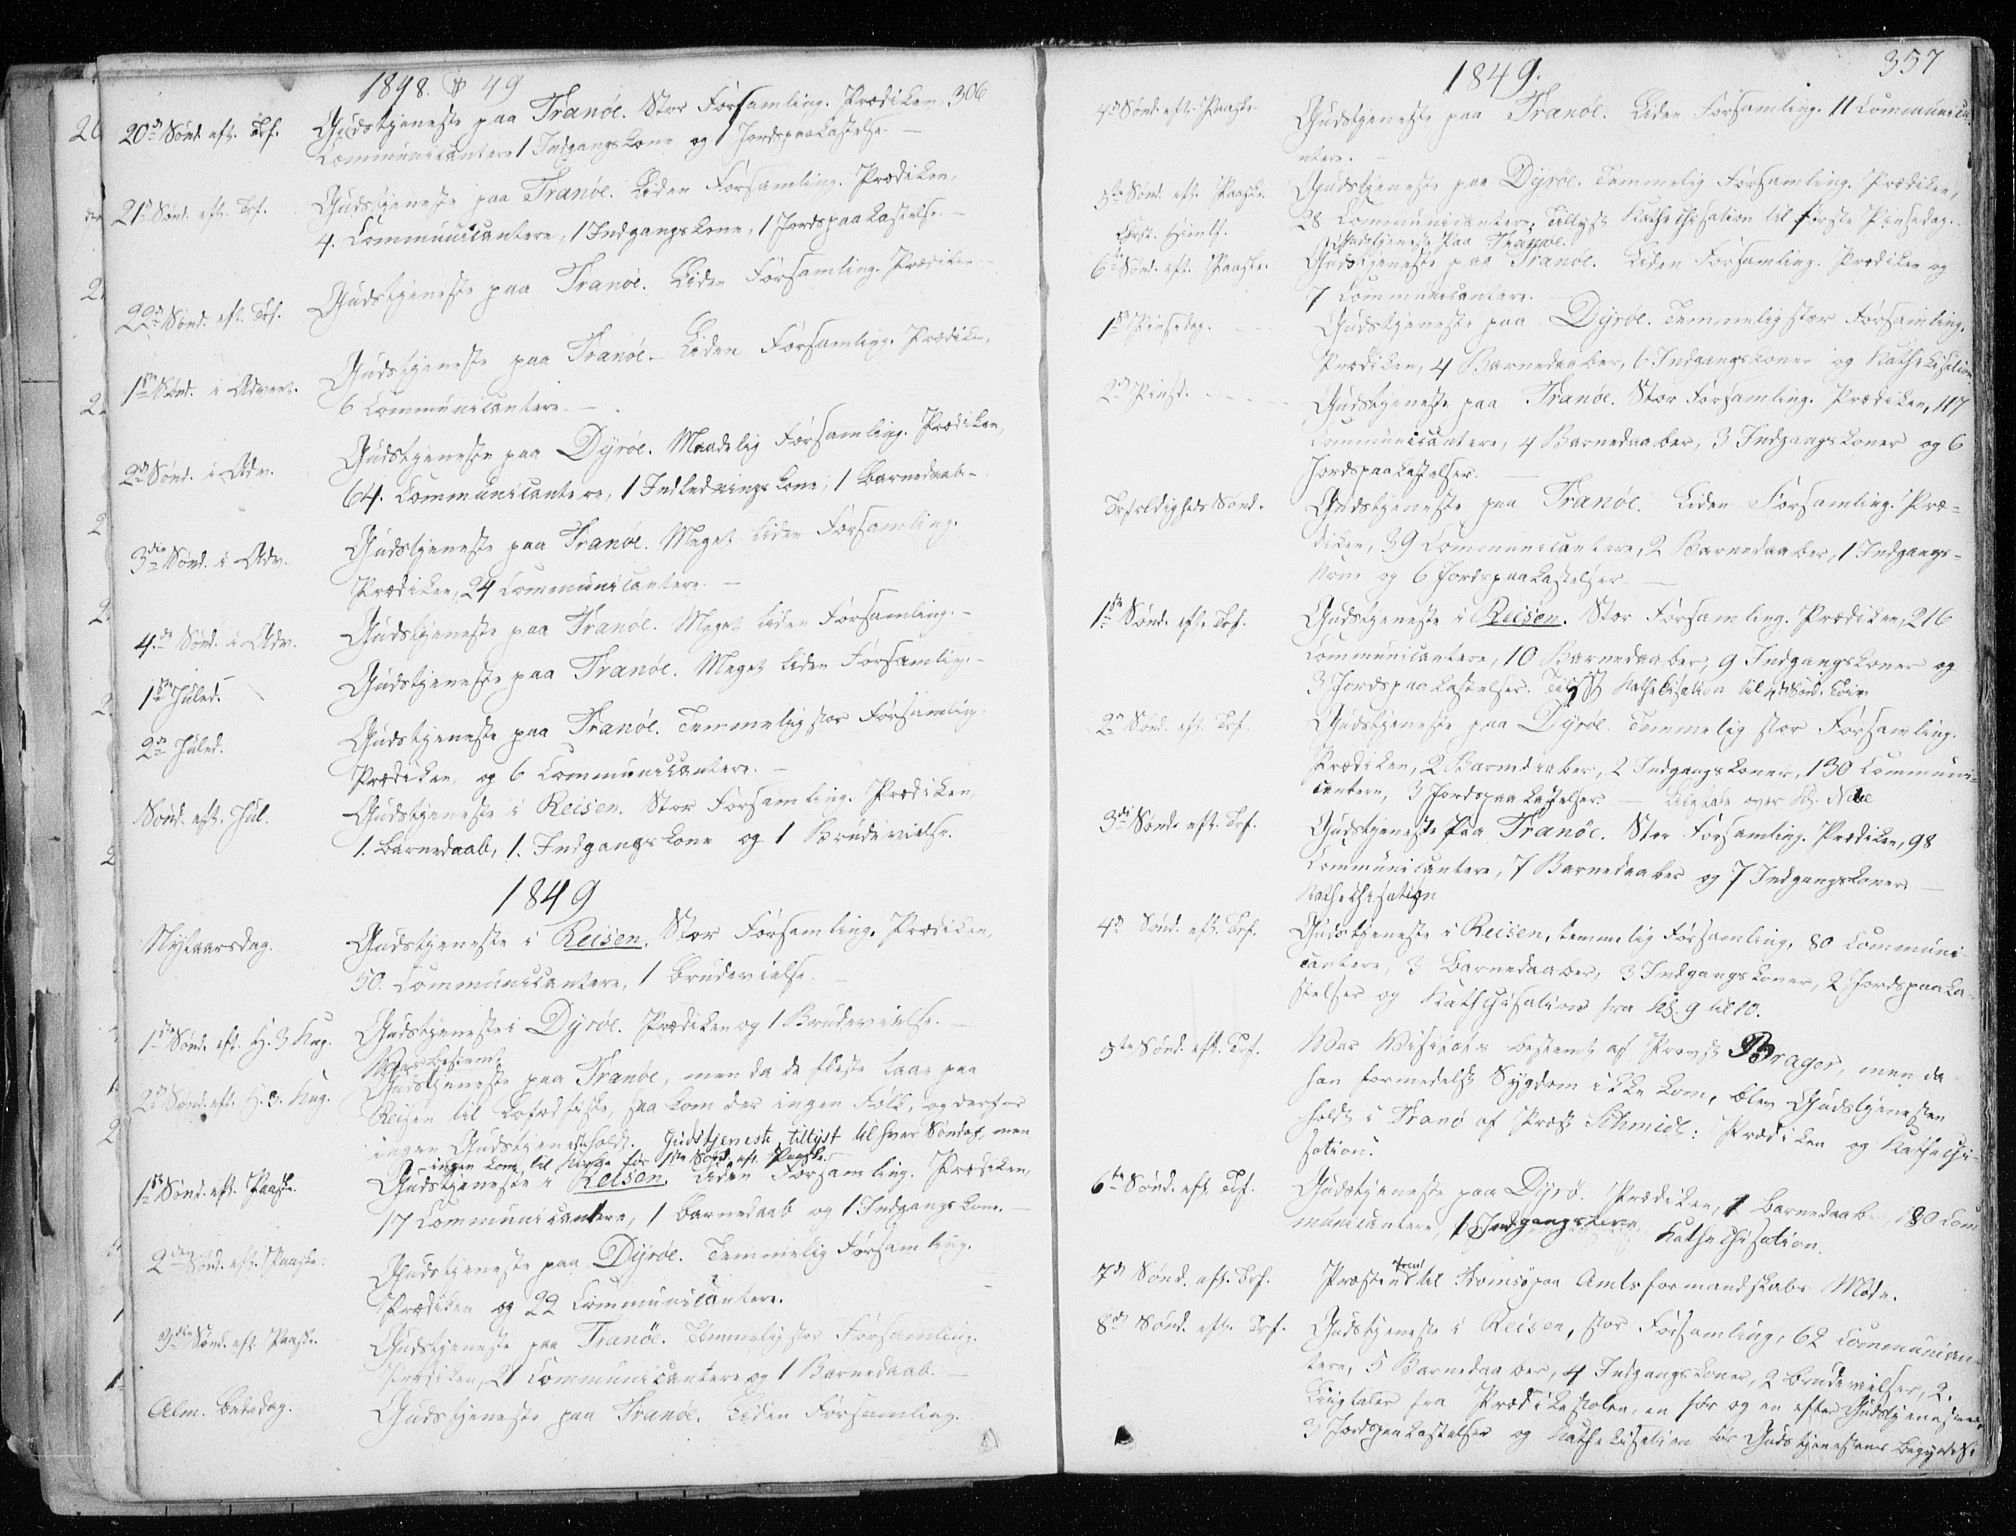 1848. & 49
20de Sønd. eft. Tref. Gudstjeneste paa Tranöe. Stor Forsamling. Prædiken. 306
Communicantere 1 Indgangskone og 1 Jordspaakastelse. —
21de Sønd. eft. Tref. Gudstjeneste paa Tranöe. Liden Forsamling. Prædiken,
4. Communicantere, 1 Indgangskone, 1 Jordspaakastelse. —
22de Sønd. eft. Tref. Gudstjeneste paa Tranöe. Liden Forsamling. Prædiken.
1ste Sønd. i Advent. Gudstjeneste paa Tranöe. Liden Forsamling. Prædiken,
6 Communicantere. —
2de Sønd. i Adv. Gudstjeneste paa Dyröe. Maadelig Forsamling. Prædiken,
64. Communicantere, 1 Indledningskone, 1 Barnedaab —
3die Sønd. i Adv. Gudstjeneste paa Tranöe. Meget liden Forsamling.
Prædiken, 24 Communicantere. —
4de Sønd. i Adv. Gudstjeneste paa Tranöe. Meget liden Forsamling. —
1ste Juled. Gudstjeneste paa Tranöe. Meget liden Forsamling. —
2de Juled. Gudstjeneste paa Tranöe. Temmelig stor Forsamling.
Prædiken og 6 Communicantere. —
Sønd. eft. Jul. Gudstjeneste i Reisen. Stor Forsamling. Prædiken,
1. Barnedaab, 1. Indgangskone og 1 Brudevielse.
1849
Nytaarsdag. Gudstjeneste i Reisen. Stor Forsamling. Prædiken,
50. Communicantere, 1 Brudevielse.
1ste Sønd. eft. H. 3 Kng. Gudstjeneste i Dyröe. Prædiken og 1 Brudevielse. —
Var bestemt
2de Sønd. eft. H. 3. Kng. Gudstjeneste paa Tranöe, men da de fleste laae paa
Reisen til Lofodfiske, saa kom der ingen Folk, og derfor
ingen Gudstjeneste holdt. Gudstjeneste tillyst til hver Søndag, men
ingen kom til Kirke før 1ste Sønd. eft. Paaske.
1ste Sønd. eft. Paaske. Gudstjeneste i Reisen. Liden Forsamling. Prædiken,
17 Communicantere, 1 Barnedaab og 1 Indgangskone. —
2den Sønd. eft. Paaske. Gudstjeneste paa Dyröe. Temmelig Forsamling.
Prædiken og 22 Communicantere.
3die Sønd. eft. Paaske. Gudstjeneste paa Tranöe. Temmelig stor Forsamling.
Prædiken, 21 Communicantere og 1 Barnedaab. —
Alm. Bededag. Gudstjeneste paa Tranöe. Liden Forsamling.
357
1849.
4de Sønd. eft. Paaske. Gudstjeneste paa Tranöe. Liden Forsamling. 11 Communica-
ntere. —
5te Sønd. eft. Paaske. Gudstjeneste paa Dyröe. Temmelig Forsamling. Prædiken,
28 Communicantere, Tillyst Kathechisation til første Pinsedag.
Christ. Himlf. Gudstjeneste paa Tranöe.
6te Sønd. eft. Paaske. Gudstjeneste paa Tranöe. Liden Forsamling. Prædiken og
7 Communicantere.
1ste Pinsedag. Gudstjeneste paa Dyröe. Temmelig stor Forsamling,
Prædiken, 4 Barnedaaber, 6 Indgangskoner og Kathekisation
2de Pinsd. Gudstjeneste paa Tranöe. Stor Forsamling. Prædiken, 117
Communicantere, 4 Barnedaaber, 3 Indgangskoner og 6
Jordspaakastelser. —
Trefoldigheds Sønd. Gudstjeneste paa Tranöe. Liden Forsamling. Præ-
diken, 39 Communicantere, 2 Barnedaaber, 1 Indgangs-
kone og 6 Jordspaakastelser —
1ste Sønd. eft. Tref. Gudstjeneste i Reisen. Stor Forsamling. Prædiken, 216
Communicantere, 10 Barnedaaber, 9 Indgangskoner og
3 Jordspaakastelser. Tillyst Kathekisation til 4de Sønd.
2de Sønd. eft. Tref. Gudstjeneste paa Dyröe. Temmelig stor Forsamling.
Prædiken, 2 Barnedaaber, 2 Indgangskoner, 130 Communi-
cantere, 3 Jordspaakastelser. — Liigtale over
3die Sønd. eft. Tref. Gudstjeneste paa Tranöe. Stor Forsamling. Prædiken, 98
Communicantere, 7 Barnedaaber og 7 Indgangskoner —
Kathechisation
4de Sønd. eft. Tref. Gudstjeneste i Reisen, temmelig Forsamling, 80 Communi-
cantere, 3 Barnedaaber, 3 Indgangskoner, 2 Jordspaaka-
stelser og Kathechisation fra Kl. 9 til 10.
5te Sønd. eft. Tref. Var Visitats bestemt af Provst Prager, men da
han formedelst Sygdom ikke kom, blev Gudstjenesten
holdt i Tranö af Præst Schmidt: Prædiken og Kathechi-
sation.
6te Sønd. eft. Tref. Gudstjeneste paa Dyrö. Prædiken, 1 Barnedaab, 180 Com-
municantere, 1 Indgangskone, Kathechisation.
7de Sønd. eft. Tref. Præsten til Tromsö paa Amtsformandskabs Møde.
8de Sønd. eft. Tref. Gudstjeneste i Reisen, stor Forsamling, 62 Communican-
tere, 5 Barnedaaber, 4 Indgangskoner, 2 Brudevielser, 2.
Liigtaler fra Prædikestolen, en før og en efter Gudstjenesten,
3 Jordspaakastelser og Kathekisation før Gudstjenestens Begyndelse